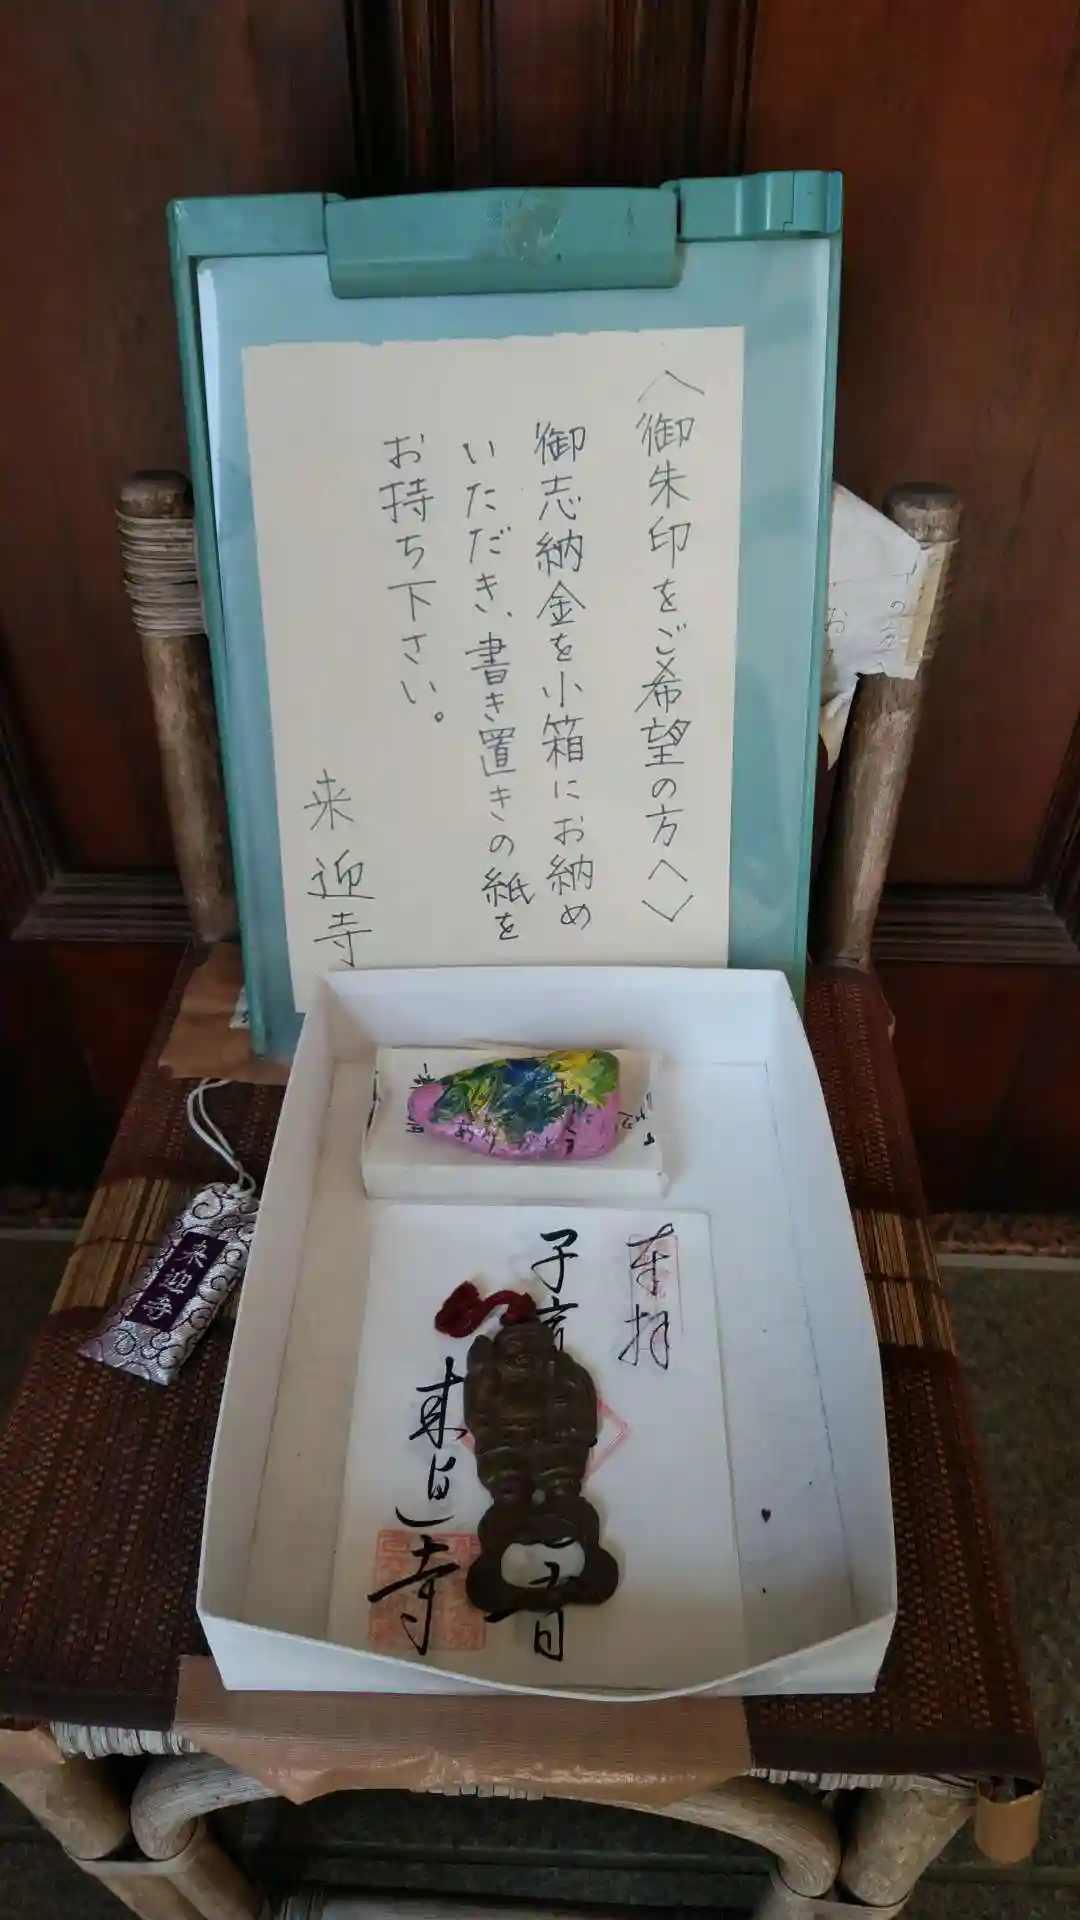 〈御朱印をご希望の方へ〉
御志納金を小箱にお納め
いただき、書き置きの紙を
お持ち下さい。
来迎寺
来迎寺
ありがとう
奉拝
子育
音
来迎寺